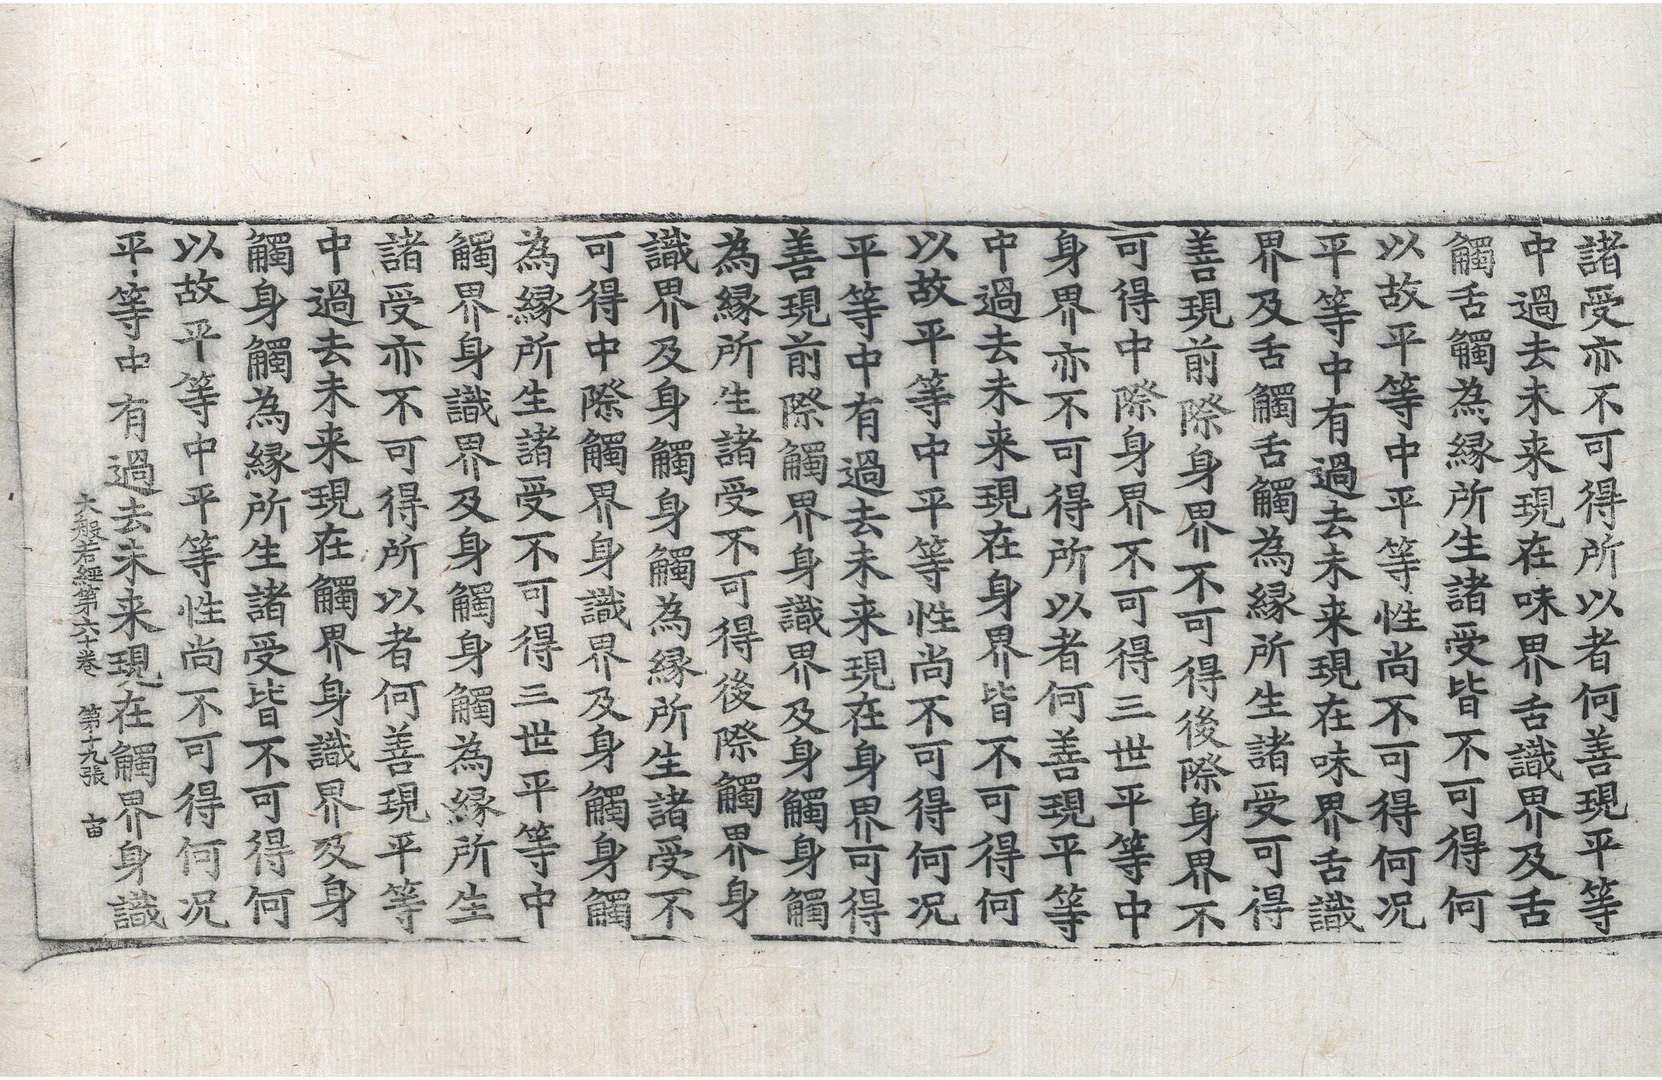 諸受亦不可得所以者何善現平等
中過去未来現在味界舌識界及舌
觸舌觸為縁所生諸受皆不可得何
以故平等中平等性尚不可得何况
平等中有過去未来現在味界舌識
界及舌觸舌觸為縁所生諸受可得
善現前際身界不可得後際身界不
可得中際身界不可得三世平等中
身界亦不可得所以者何善現平等
中過去未来現在身界皆不可得何
以故平等中平等性尚不可得何况
平等中有過去未来現在身界可得
善現前際觸界身識界及身觸身觸
為縁所生諸受不可得後際觸界身
識界及身觸身觸為縁所生諸受不
可得中際觸界身識界及身觸身觸
為縁所生諸受不可得三世平等中
觸界身識界及身觸身觸為縁所生
諸受亦不可得所以者何善現平等
中過去未来現在觸界身識界及身
觸身觸為縁所生諸受皆不可得何
以故平等中平等性尚不可得何况
平等中有過去未来現在觸界身識
大般若經第六十卷 第十九張 宙